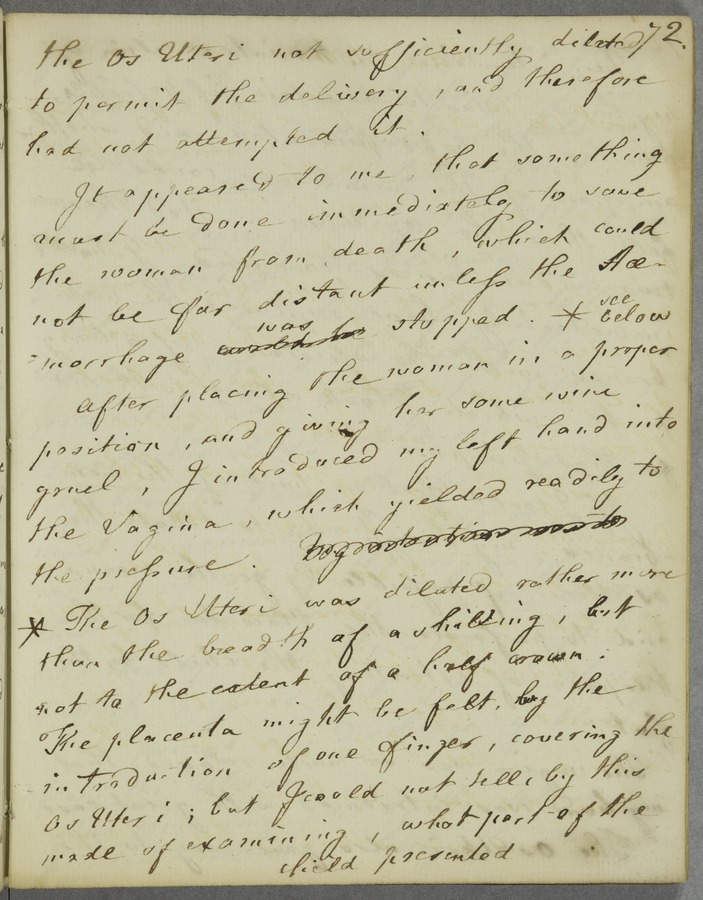 72.
the Os Uteri not sufficiently dilated
to permit the delivery, and therefore
had not attempted it.
It appeared to me, that something
must be done immediately to save
the woman from death, which could
not be far distant unless the Hæ-
=morrhage was stopped. * see below
After placing the woman in a proper
position, and giving her some wine
gruel, I introduced my left hand into
the Vagina, which yielded readily to
the pressure.
* The Os Uteri was dilated rather more
than the breadth of a shilling, but
not to the extent of a half crown.
The placenta might be felt, by the
introduction of one finger, covering the
Os Uteri; but I could not tell, by this
mode of examining, what part of the
child presented